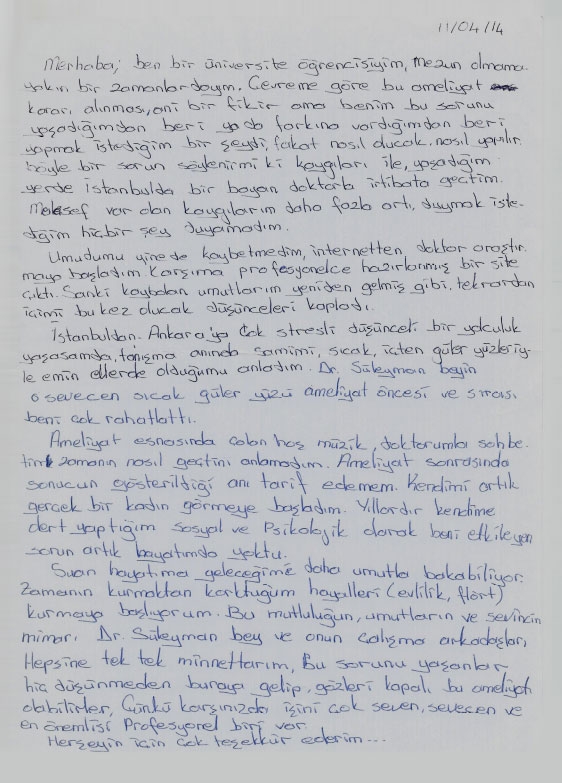 11/04/14
Merhaba; ben bir üniversite öğrencisiyim, mezun olmama
yakın bir zamanlardayım. Çevreme göre bu ameliyat
kararı alınması, ani bir fikir ama benim bu sorunu
yaşadığımdan beri ya da farkına vardığımdan beri
yapmak istediğim bir şeydi, fakat nasıl olucak, nasıl yapılır
böyle bir sorun söylenirmi ki kaygıları ile, yaşadığım
yerde İstanbulda bir bayan doktorla irtibata geçtim.
Malesef var olan kaygılarım daha fazla artı, duymak iste-
diğim hiçbir şey duyamadım.
Umudumu yinede kaybetmedim, internetten doktor araştır.
maya başladım karşıma profesyonelce hazırlanmış bir site
çıktı. Sanki kaybolan umutlarım yeniden gelmiş gibi, tekrardan
içimi bu kez olucak düşünceleri kapladı.
İstanbuldan. Ankara'ya çok stresli düşünceli bir yolculuk
yaşasamda, tanışma anında samimi, sıcak, içten güler yüzleriy-
le emin ellerde olduğumu anladım. Dr. Süleyman beyin
o sevecen sıcak güler yüzü ameliyat öncesi ve sırası
beni çok rahatlattı.
Ameliyat esnasında çalan hoş müzik, doktorumla sohbe.
tim zamanın nasıl geçtini anlamadım. Ameliyat sonrasında
sonucun gösterildiği anı tarif edemem. Kendimi artık
gerçek bir kadın görmeye başladım. Yıllardır kendime
dert yaptığım sosyal ve Psikolojik olarak beni etkileyen
sorun artık hayatımda yoktu.
Şuan hayatıma geleceğime daha umutla bakabiliyor.
Zamanın kurmaktan korktuğum hayalleri (evlilik, flört)
kurmaya başlıyorum. Bu mutluluğun, umutların ve sevincin
mimarı Dr. Süleyman bey ve onun çalışma arkadaşları,
Hepsine tek tek minnettarım, Bu sorunu yaşanlar
hiç düşünmeden buraya gelip, gözleri kapalı bu ameliyatı
olabilirler, Çünkü karşınızda işini çok seven, sevecen ve
en önemlisi Profesyonel biri var.
Herşeyin için çok teşekkür ederim...